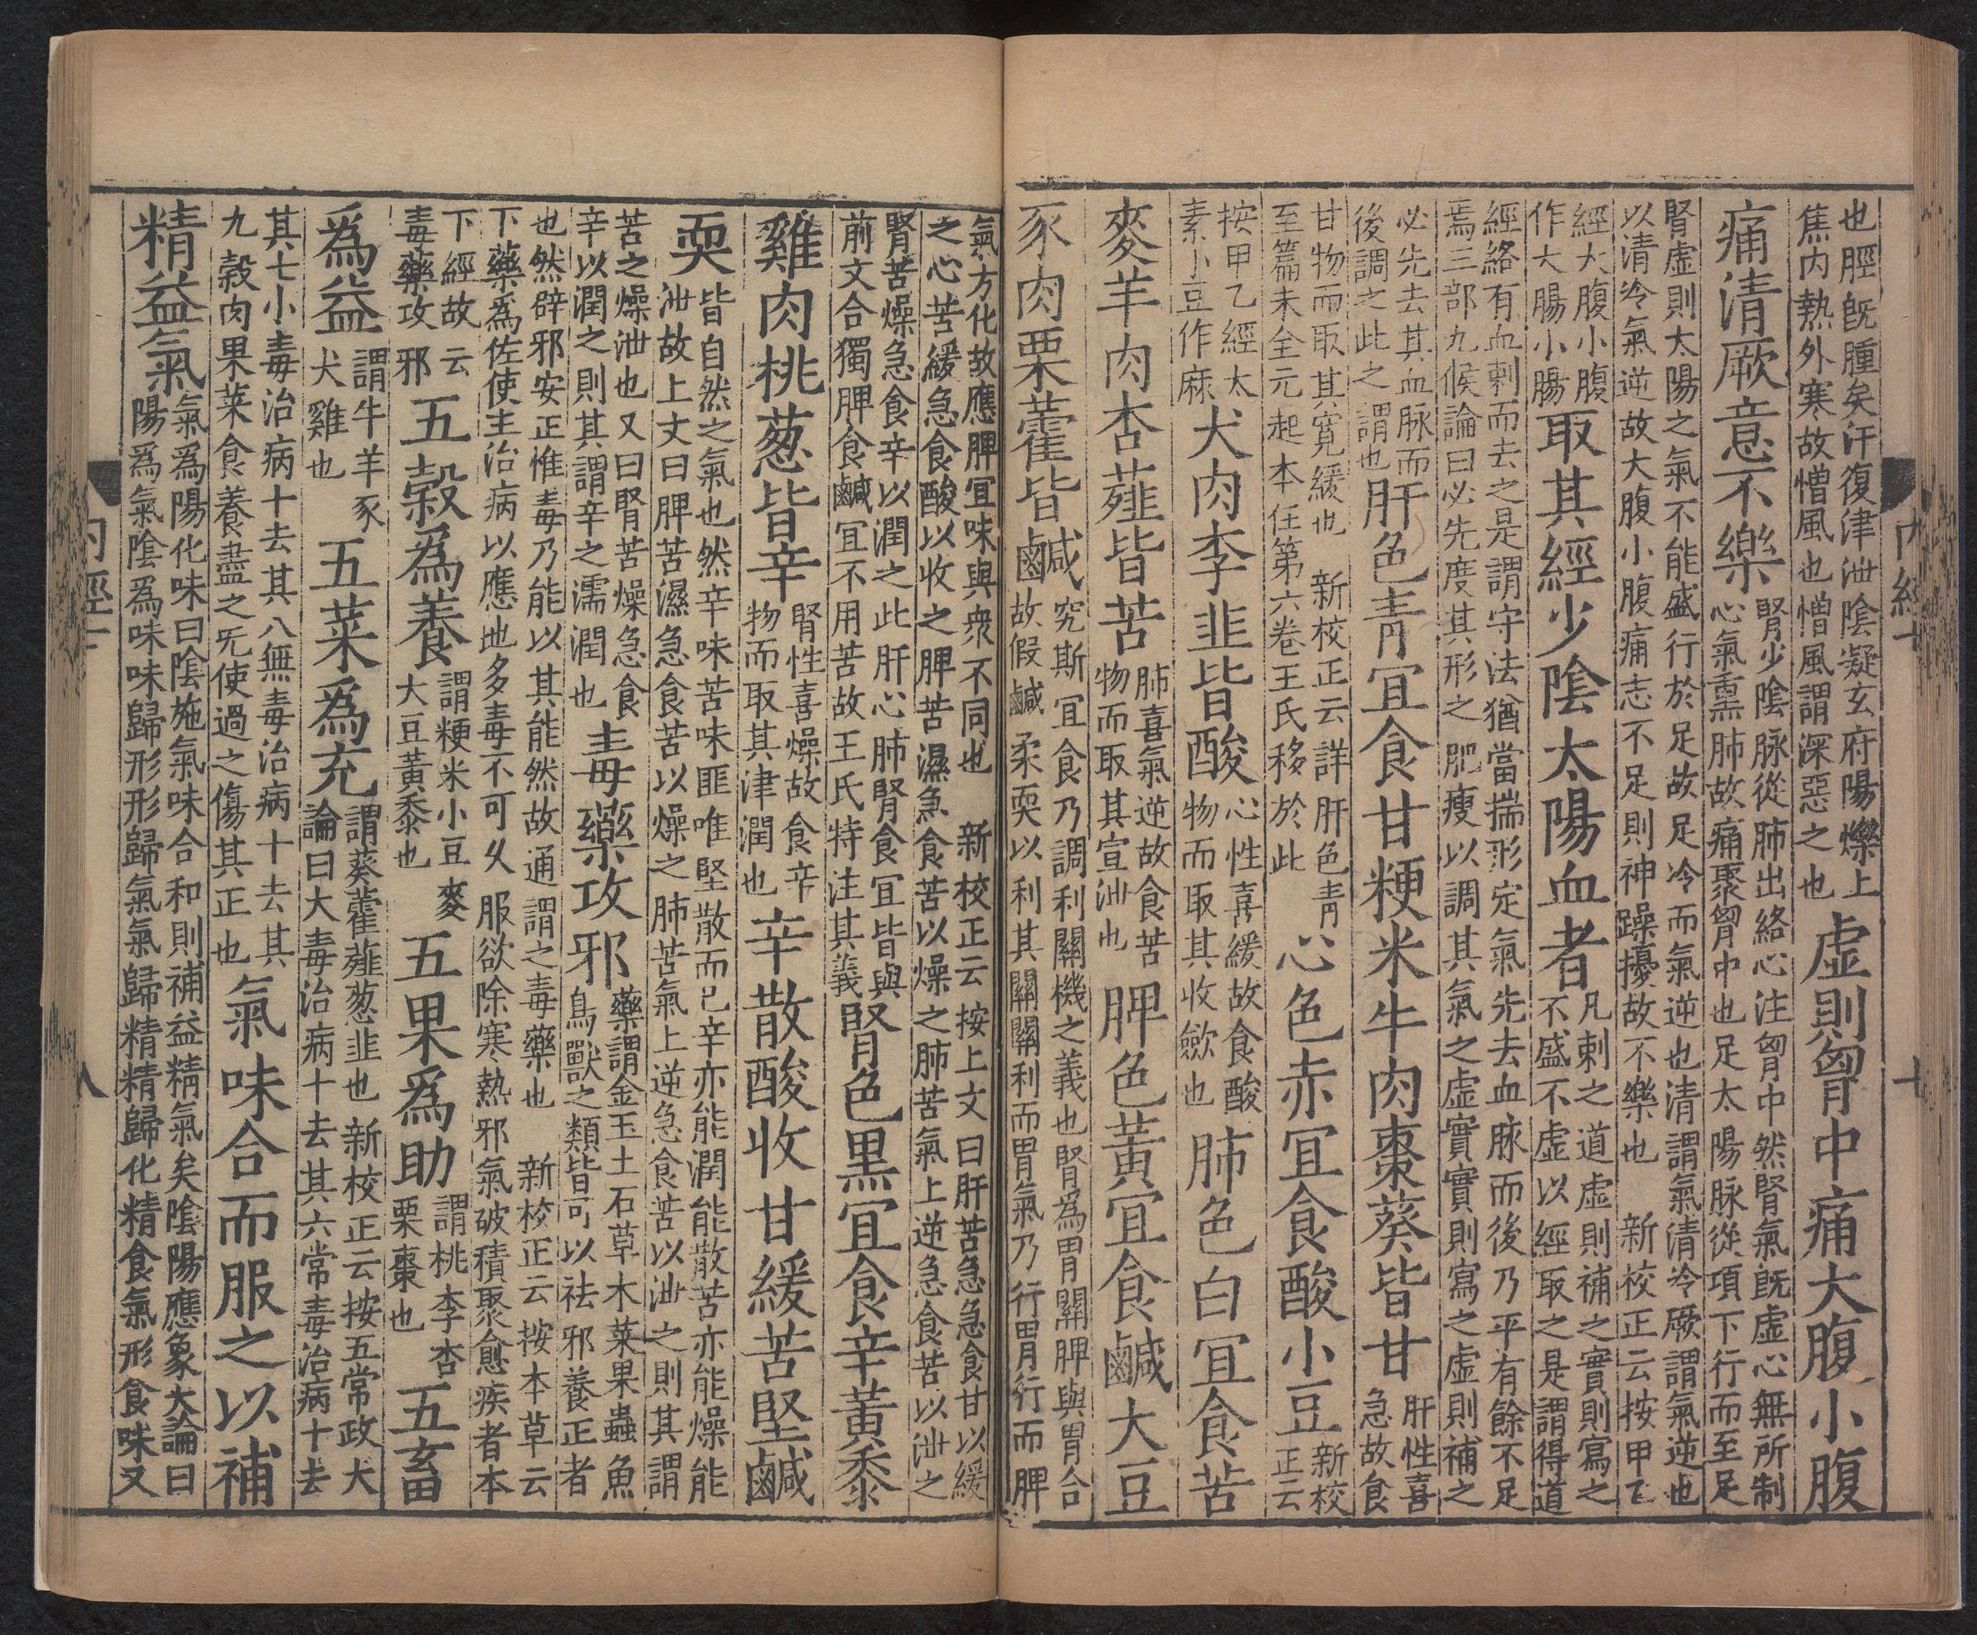 也脛既腫矣汗復津泄陰凝玄府陽爍上
焦內熱外寒故憎風也憎風謂深惡之也
虛則胷中痛大腹小腹
痛清厥意不樂
腎少陰脉從肺出絡心注胷中然腎氣既虛心無所制
心氣熏肺故痛聚胷中也足太陽脉從項下行而至足
腎虛則太陽之氣不能盛行於足故足冷而氣逆也清謂氣清冷厥謂氣逆也
以清冷氣逆故大腹小腹痛志不足則神躁擾故不樂也 新校正云按甲乙
經大腹小腹
作大腸小腸
取其經少陰太陽血者
凡刺之道虛則補之實則寫之
不盛不虛以經取之是謂得道
經絡有血刺而去之是謂守法猶當揣形定氣先去血脉而後乃平有餘不足
焉三部九候論曰必先度其形之肥瘦以調其氣之虛實實則寫之虛則補之
必先去其血脉而
後調之此之謂也
肝色青宜食甘粳米牛肉棗葵皆甘
肝性喜
急故食
甘物而取其寬緩也 新校正云詳肝色青
至篇末全元起本在第六卷王氏移於此
心色赤宜食酸小豆
新校
正云
按甲乙經太
素小豆作麻
犬肉李韭皆酸
心性喜緩故食酸
物而取其收歛也
肺色白宜食苦
麥羊肉杏薤皆苦
肺喜氣逆故食苦
物而取其宣泄也
脾色黃宜食鹹大豆
豕肉栗藿皆鹹
究斯宜食乃調利關機之義也腎為胃關脾與胃合
故假鹹柔耎以利其關關利而胃氣乃行胃行而脾
氣方化故應脾宜味與衆不同也 新校正云按上文曰肝苦急急食甘以緩
之心苦緩急食酸以收之脾苦濕急食苦以燥之肺苦氣上逆急食苦以泄之
腎苦燥急食辛以潤之此肝心肺腎食宜皆與
前文合獨脾食鹹宜不用苦故王氏特注其義
腎色黑宜食辛黃黍
雞肉桃葱皆辛
腎性喜燥故食辛
物而取其津潤也
辛散酸收甘緩苦堅鹹
耎
皆自然之氣也然辛味苦味匪唯堅散而已辛亦能潤能散苦亦能燥能
泄故上文曰脾苦濕急食苦以燥之肺苦氣上逆急食苦以泄之則其謂
苦之燥泄也又曰腎苦燥急食
辛以潤之則其謂辛之濡潤也
毒藥攻邪
藥謂金玉土石草木菜果蟲魚
鳥獸之類皆可以祛邪養正者
也然辟邪安正惟毒乃能以其能然故通謂之毒藥也 新校正云按本草云
下藥為佐使主治病以應地多毒不可久服欲除寒熱邪氣破積聚愈疾者本
下經故云
毒藥攻邪
五穀為養
謂粳米小豆麥
大豆黃黍也
五果為助
謂桃李杏
栗棗也
五畜
為益
謂牛羊豕
犬雞也
五菜為充
謂葵藿薤葱韭也 新校正云按五常政大
論曰大毒治病十去其六常毒治病十去
其七小毒治病十去其八無毒治病十去其
九穀肉果菜食養盡之无使過之傷其正也
氣味合而服之以補
精益氣
氣為陽化味曰陰施氣味合和則補益精氣矣陰陽應象大論曰
陽為氣陰為味味歸形形歸氣氣歸精精歸化精食氣形食味又